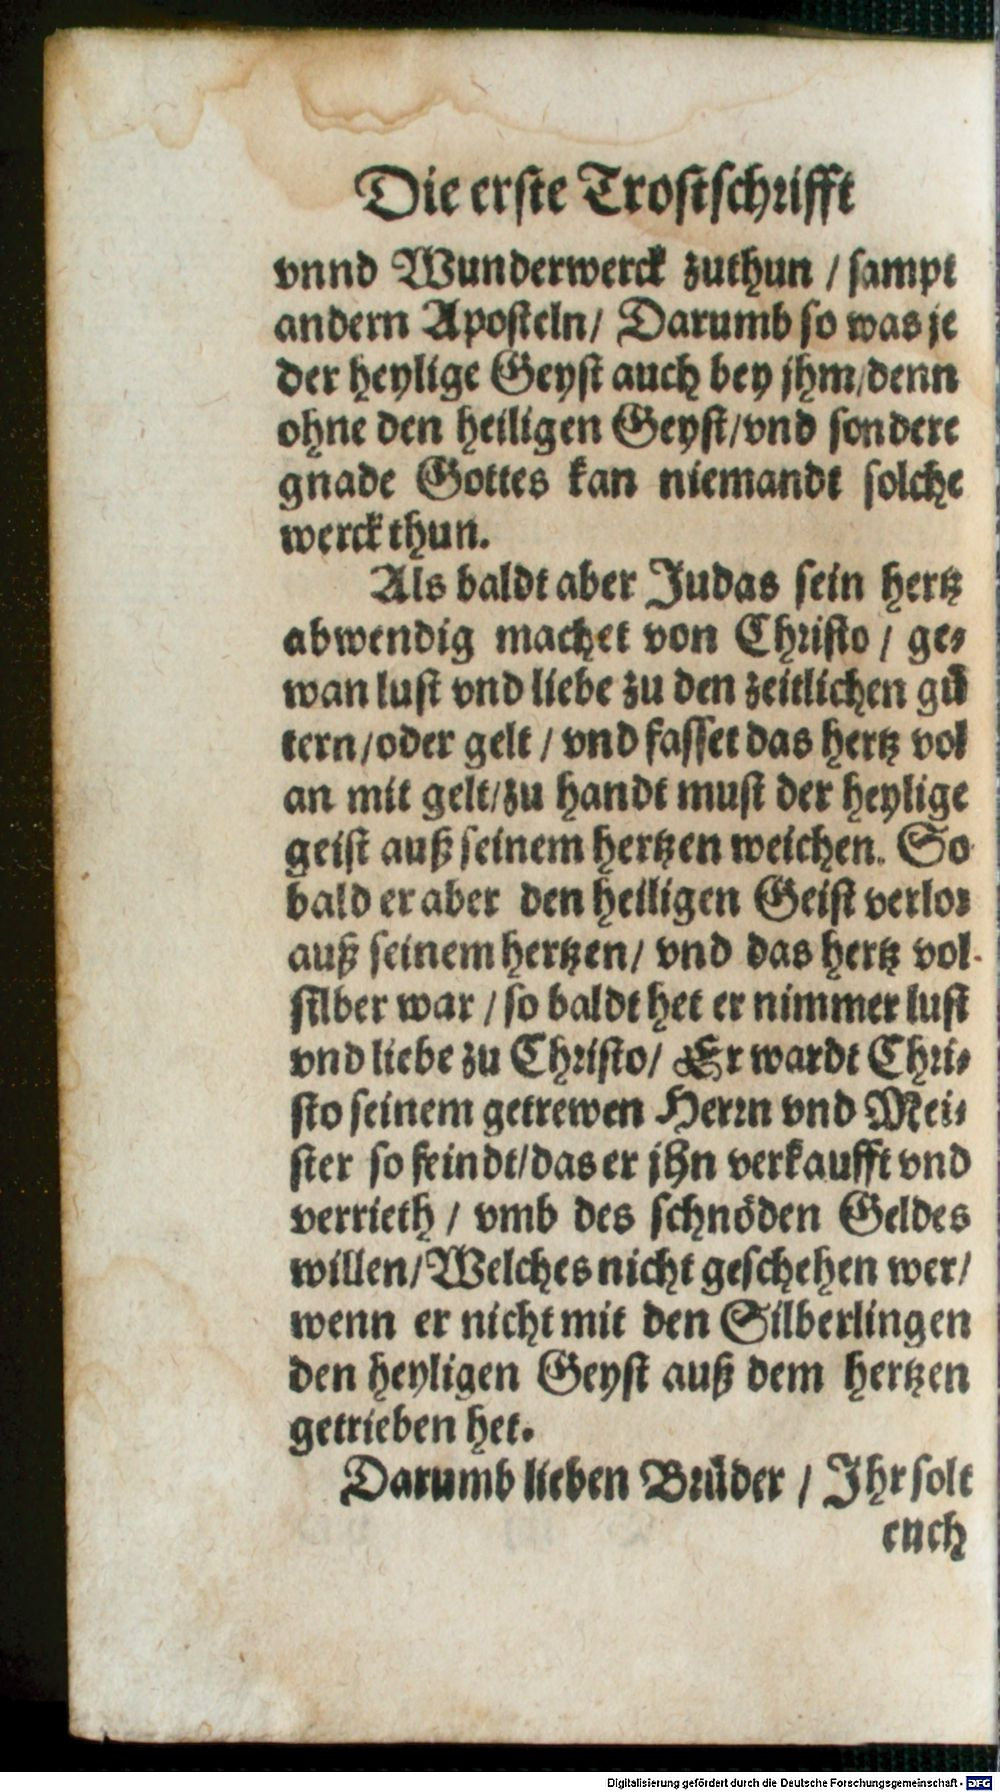 Die erste Trostschrifft
vnnd Wunderwerck zuthun / sampt
andern Aposteln/ Darumb so was je
der heylige Geyst auch bey jhm/denn
ohne den heiligen Geyst/vnd sondere
gnade Gottes kan niemandt solche
werck thun.
Als baldt aber Judas sein hertz
abwendig machet von Christo / ge-
wan lust vnd liebe zu den zeitlichen gü
tern/oder gelt / vnd fasset das hertz vol
an mit gelt/zu handt must der heylige
geist auß seinem hertzen weichen. So
bald er aber den heiligen Geist verlor
auß seinem hertzen/ vnd das hertz vol
silber war / so baldt het er nimmer lust
vnd liebe zu Christo/ Er wardt Chri-
sto seinem getrewen Herrn vnd Mei-
ster so feindt/das er jhn verkaufft vnd
verrieth / vmb des schnöden Geldes
willen/Welches nicht geschehen wer/
wenn er nicht mit den Silberlingen
den heyligen Geyst auß dem hertzen
getrieben het.
Darumb lieben Brüder / Jhr solt
euch
Digitalisierung gefördert durch die Deutsche Forschungsgemeinschaft - DFG